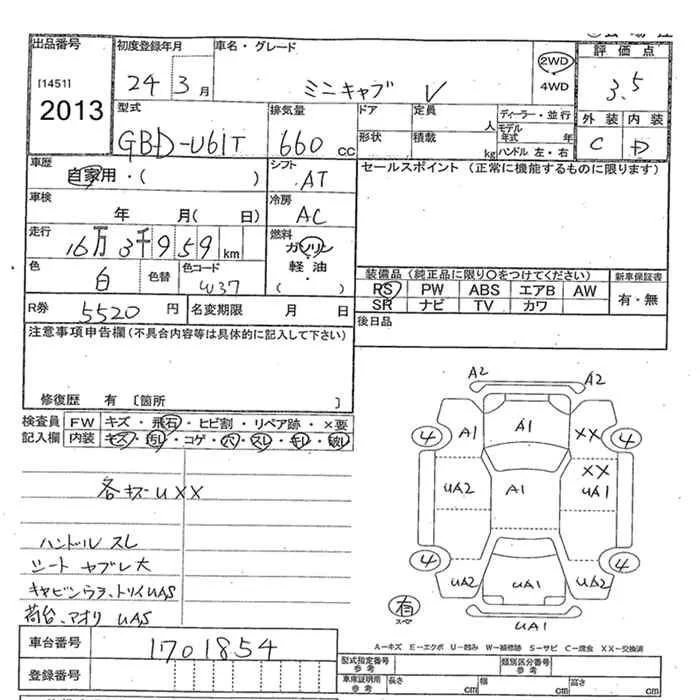 出品番号
[1451]
2013
初度登録年月
24 3月
車名・グレード
ミニキャブ V
2WD
4WD
評価点
3.5
外装 内装
C D
型式
GBD-U61T
排気量
660 cc
ドア
形状
定員
人
積載
kg
ディーラー・並行
モデル年式 年
ハンドル 左・右
車歴
自家用・( )
シフト
AT
車検
年 月( 日)
冷房
AC
走行
16万3千959km
燃料
ガソリン
軽油
( )
色
白
色替
色コード
W37
R券 5520 円
名変期限 月 日
セールスポイント (正常に機能するものに限ります)
装備品 (純正品に限り○をつけてください)
新車保証書
RS PW ABS エアB AW
SR ナビ TV カワ
有・無
後日品
注意事項申告欄(不具合内容等は具体的に記入して下さい)
修復歴 有 [箇所 ]
検査員 FW キズ・飛石・ヒビ割・リペア跡・×要
記入欄 内装 キズ・汚し・コゲ・穴・スレ・キレ・破レ
各キズ-UXX
ハンドル スレ
シート ヤブレ大
キャビンウラ、トリイUAS
荷台、アオリ UAS
A2 A2
4 A1 A1 XX 4
XX
UA2 A1 UA1
4 4
UA2 UA1 UA2
有
スペア
UA1
A-キズ E-エクボ U-凹み W-補修跡 S-サビ C-腐食 XX-交換済
車台番号 1701854
登録番号
型式指定番号
参考
類別区分番号
参考
車庫証明用
参考
長さ cm 幅 cm 高さ cm